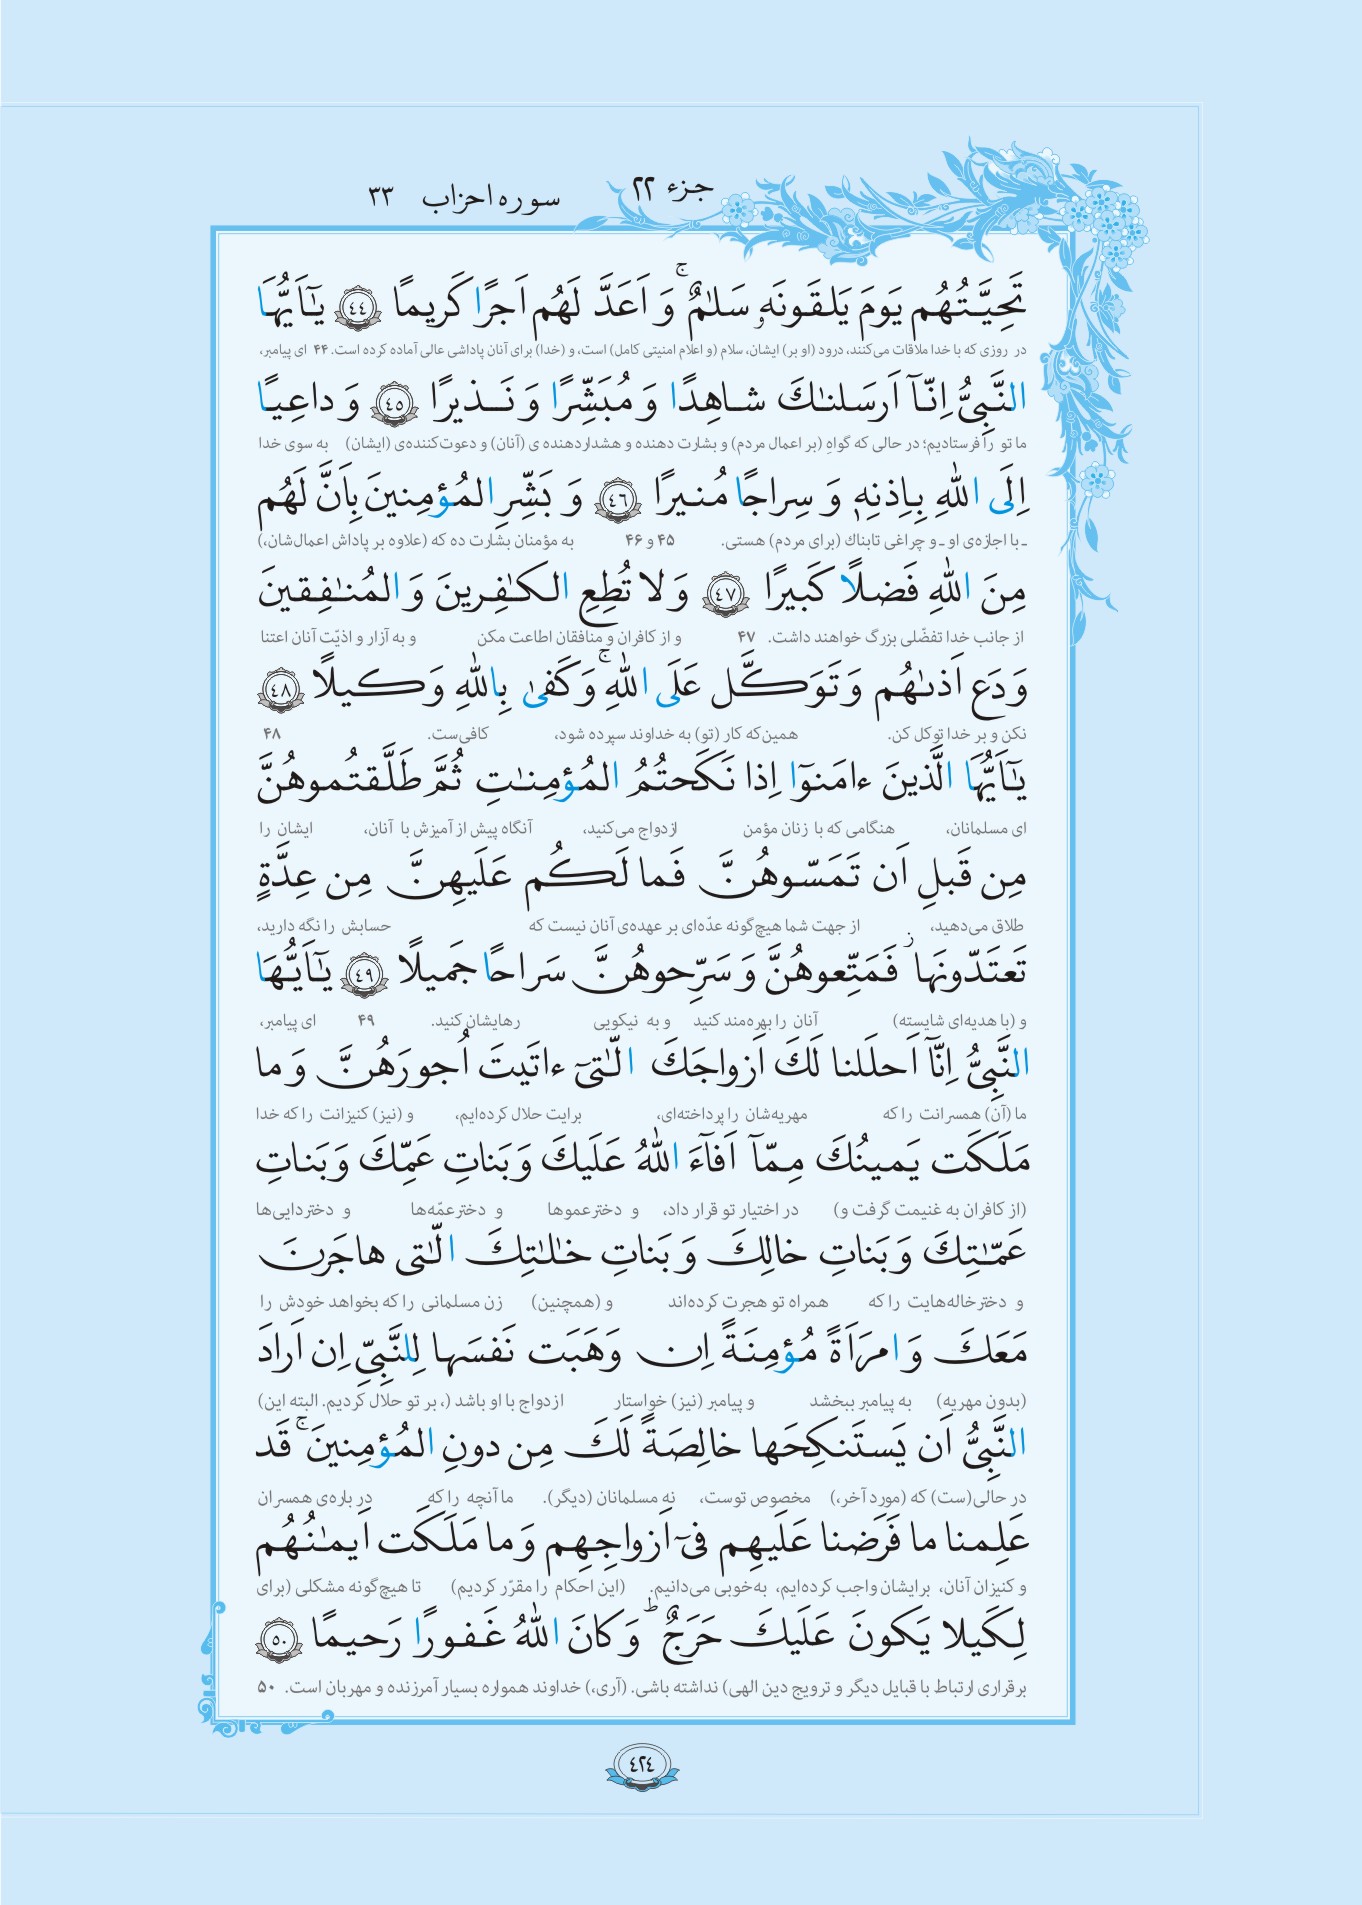 جزء ۲۲
سوره احزاب ۳۳
تَحِيَّتُهُم يَومَ يَلقَونَهٗ سَلٰمٌ ۚ وَ اَعَدَّ لَهُم اَجرًا كَريمًا ﴿٤٤﴾ يٰٓاَيُّهَا
در روزی که با خدا ملاقات می‌کنند، درود (او بر) ایشان، سلام (و اعلام امنیتی کامل) است، و (خدا) برای آنان پاداشی عالی آماده کرده است. ۴۴ ای پیامبر،
النَّبِيُّ اِنّآ اَرسَلنٰكَ شاهِدًا وَ مُبَشِّرًا وَ نَذيرًا ﴿٤٥﴾ وَ داعِيًا
ما تو را فرستادیم؛ در حالی که گواهِ (بر اعمال مردم) و بشارت دهنده و هشداردهنده ی (آنان) و دعوت‌کننده‌ی (ایشان) به سوی خدا
اِلَى اللهِ بِاِذنِهٖ وَ سِراجًا مُنيرًا ﴿٤٦﴾ وَ بَشِّرِ المُؤمِنينَ بِاَنَّ لَهُم
ـ با اجازه‌ی او ـ و چراغی تابناک (برای مردم) هستی. ۴۵ و ۴۶ به مؤمنان بشارت ده که (علاوه بر پاداش اعمال‌شان،)
مِنَ اللهِ فَضلًا كَبيرًا ﴿٤٧﴾ وَ لا تُطِعِ الكٰفِرينَ وَ المُنٰفِقينَ
از جانب خدا تفضّلی بزرگ خواهند داشت. ۴۷ و از کافران و منافقان اطاعت مکن و به آزار و اذیّت آنان اعتنا
وَ دَع اَذىٰهُم وَ تَوَكَّل عَلَى اللهِ ۚ وَ كَفىٰ بِاللهِ وَكيلًا ﴿٤٨﴾
نکن و بر خدا توکل کن. همین‌که کار (تو) به خداوند سپرده شود، کافی‌ست. ۴۸
يٰٓاَيُّهَا الَّذينَ ءامَنوٓا اِذا نَكَحتُمُ المُؤمِنٰتِ ثُمَّ طَلَّقتُموهُنَّ
ای مسلمانان، هنگامی که با زنان مؤمن ازدواج می‌کنید، آنگاه پیش از آمیزش با آنان، ایشان را
مِن قَبلِ اَن تَمَسّوهُنَّ فَما لَكُم عَلَيهِنَّ مِن عِدَّةٍ
طلاق می‌دهید، از جهت شما هیچ‌گونه عدّه‌ای بر عهده‌ی آنان نیست که حسابش را نگه دارید،
تَعتَدّونَها ۖ فَمَتِّعوهُنَّ وَ سَرِّحوهُنَّ سَراحًا جَميلًا ﴿٤٩﴾ يٰٓاَيُّهَا
و (با هدیه‌ای شایسته) آنان را بهره‌مند کنید و به نیکویی رهایشان کنید. ۴۹ ای پیامبر،
النَّبِيُّ اِنّآ اَحلَلنا لَكَ اَزواجَكَ الّٰتىٓ ءاتَيتَ اُجورَهُنَّ وَ ما
ما (آن) همسرانت را که مهریه‌شان را پرداخته‌ای، برایت حلال کرده‌ایم، و (نیز) کنیزانت را که خدا
مَلَكَت يَمينُكَ مِمّآ اَفآءَ اللهُ عَلَيكَ وَ بَناتِ عَمِّكَ وَ بَناتِ
(از کافران به غنیمت گرفت و) در اختیار تو قرار داد، و دخترعموها و دخترعمّه‌ها و دختردایی‌ها
عَمّٰتِكَ وَ بَناتِ خالِكَ وَ بَناتِ خٰلٰتِكَ الّٰتى هاجَرنَ
و دخترخاله‌هایت را که همراه تو هجرت کرده‌اند و (همچنین) زن مسلمانی را که بخواهد خودش را
مَعَكَ وَ امرَاَةً مُؤمِنَةً اِن وَهَبَت نَفسَها لِلنَّبِيِّ اِن اَرادَ
(بدون مهریه) به پیامبر ببخشد و پیامبر (نیز) خواستار ازدواج با او باشد (، بر تو حلال کردیم. البته این)
النَّبِيُّ اَن يَستَنكِحَها خالِصَةً لَكَ مِن دونِ المُؤمِنينَ ۚ قَد
در حالی(ست) که (مورد آخر،) مخصوص توست، نه مسلمانان (دیگر). ما آنچه را که در باره‌ی همسران
عَلِمنا ما فَرَضنا عَلَيهِم فىٓ اَزواجِهِم وَ ما مَلَكَت اَيمٰنُهُم
و کنیزان آنان، برایشان واجب کرده‌ایم، به‌خوبی می‌دانیم. (این احکام را مقرّر کردیم) تا هیچ‌گونه مشکلی (برای
لِكَيلا يَكونَ عَلَيكَ حَرَجٌ ؕ وَ كانَ اللهُ غَفورًا رَحيمًا ﴿٥٠﴾
برقراری ارتباط با قبایل دیگر و ترویج دین الهی) نداشته باشی. (آری،) خداوند همواره بسیار آمرزنده و مهربان است. ۵۰
٤٢٤